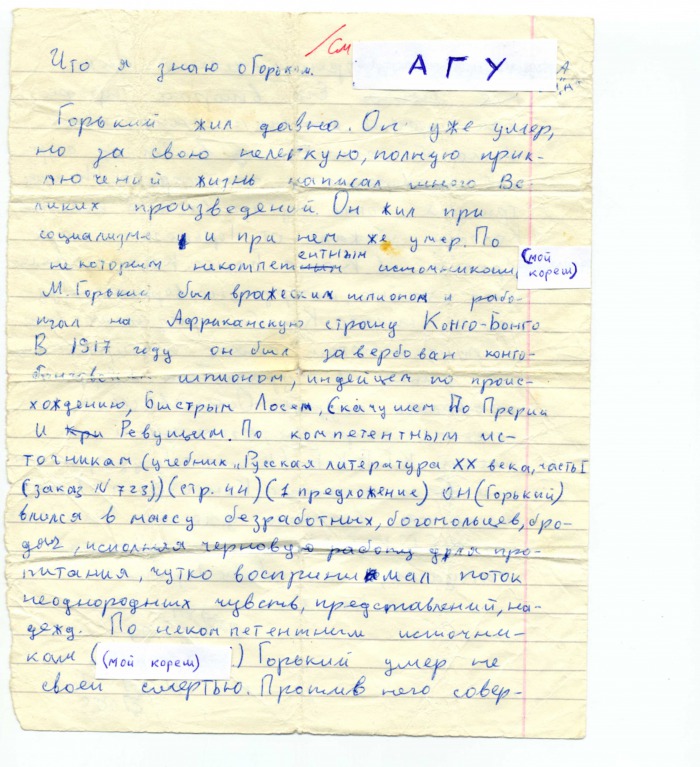 /см
Что я знаю о Горьком. АГУ А
"А"
Горький жил давно. Он уже умер,
но за свою нелегкую, полную прик-
лючений жизнь написал много Ве-
ликих произведений. Он жил при
социализме и при нем же умер. По
некоторым некомпетентным источникам (мой кореш)
М. Горький был вражеским шпионом и рабо-
тал на Африканскую страну Конго-Бонго
В 1917 году он был завербован конго-
шпионом, индейцем по проис-
хождению, Быстрым Лосем, Скачущем По Прерии
И Ревущим. По компетентным ис-
точникам (учебник „Русская литература XX века, часть I
(заказ N 723)) (стр. 44) (1 предложение) ОН (Горький)
влился в массу безработных, богомольцев, бро-
дяг, исполняя черновую работу для про-
питания, чутко воспринимал поток
неоднородных чувств, представлений, на-
дежд. По некомпетентным источни-
кам ((мой кореш) ) Горький умер не
своей смертью. Против него совер-